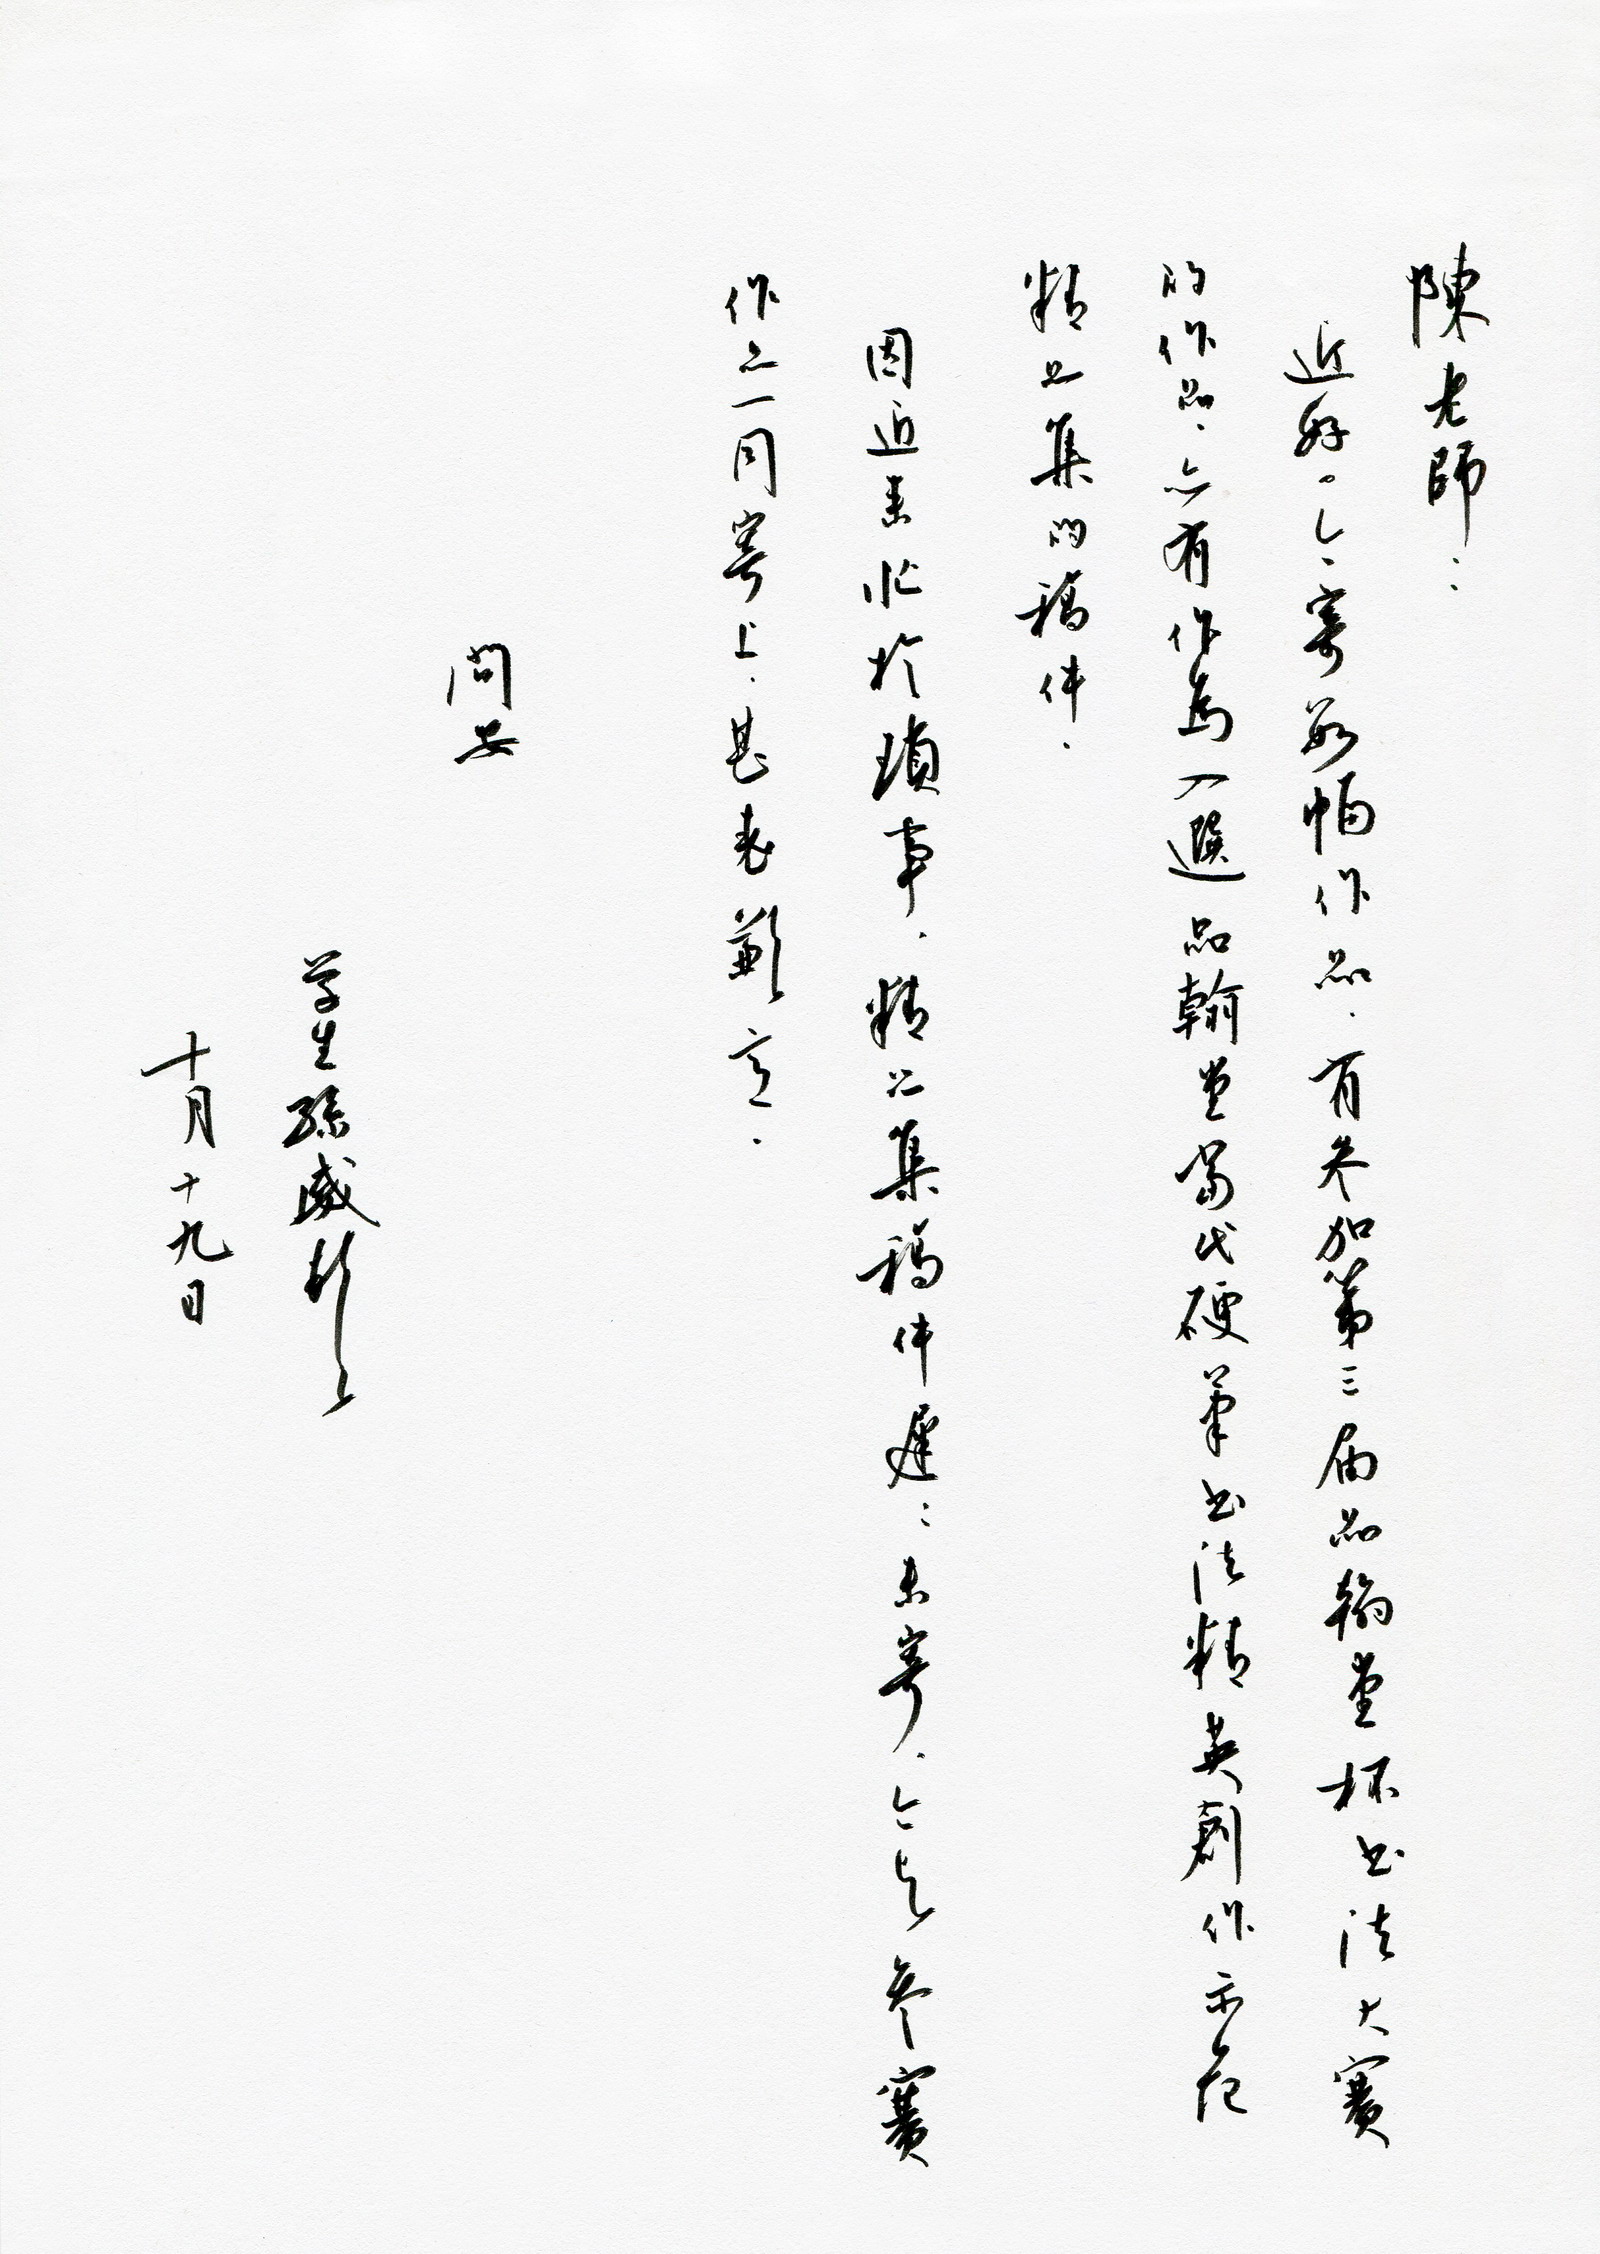 陳老師：
近好。今寄數幅作品，有参加第三届品翰堂杯书法大賽
的作品，亦有作為入選品翰堂當代硬筆书法精英創作示范
精品集的稿件。
因近来忙於瑣事，精品集稿件遲遲未寄，今与参賽
作品一同寄上，甚表歉意。
問安
学生孫威
十月十九日